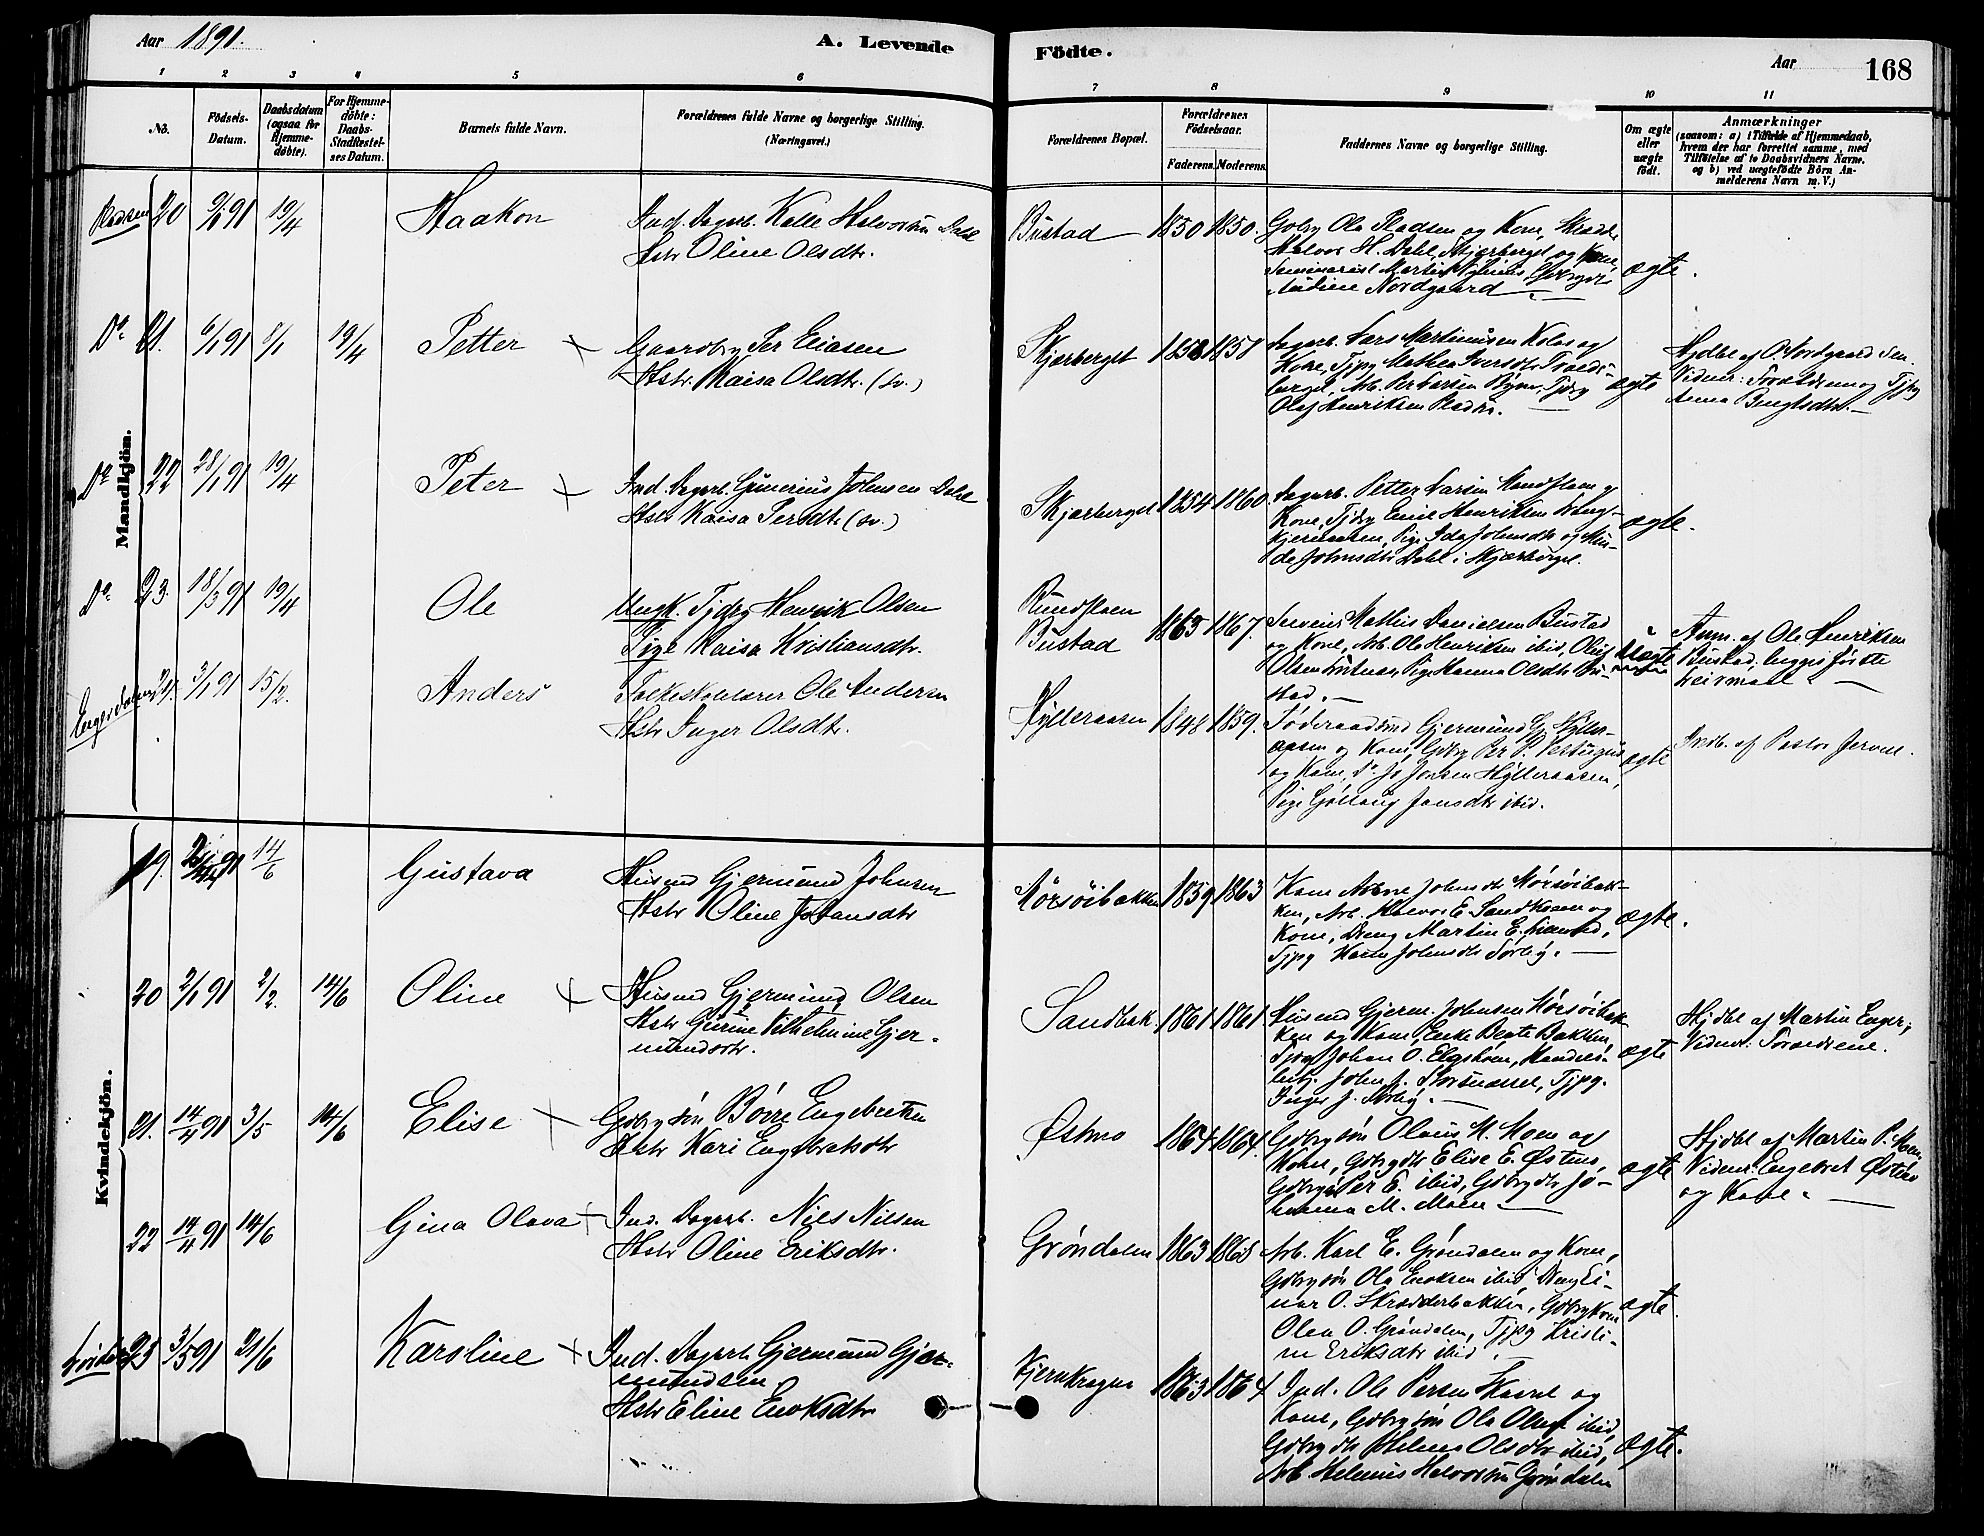 Aar 1891.
A. Levende
Födte.
Aar
168
1 2 3 4 5 6 7 8 9 10 11
No.
Födsels-
Datum.
Daabsdatum
(ogsaa for
Hjemme-
döbte).
For Hjemme-
döbte:
Daabs-
Stadfæstel-
ses Datum.
Barnets fulde Navn.
Forældrenes fulde Navne og borgerlige Stilling.
(Næringsvei.)
Forældrenes Bopæl.
Forældrenes
Födselsaar.
Faderens. Moderens.
Faddernes Navne og borgerlige Stilling.
Om ægte
eller
uægte
født.
Anmærkninger
(saasom: a) i Tilfælde af Hjemmedaab,
hvem der har forrettet samme, med
Tilföielse af to Daabsvidners Navne.
og b) ved uægtefödte Börn An-
melderens Navn m. V.)
Mandkjön.
20 19/4
Haakon
Ind. Dagarb. Kelle Halvorsen Dahl
Hstr Oline Olsdtr.
Bustad 1850 1850.
Gbrg Ole Pladsen og Kone,
Halvor H. Dahl, Skjærberget og Kone,
Nordgaard
ægte.
Do. 21. 6/1 91 8/1 19/4
Petter
Gaardbr Per Eliasen
Hstr Kaisa Olsdtr. (sv.)
Skjærberget 1858 1858
Dagarb. Lars Martinusen Kolos og
Kone, Tjpg Mathea Iversdtr
Arb. Per Larsen Tjdrg
Olaf Henriksen
ægte
Hjdbt af O. Nordgaard Sen.
Vidner: Forældrene og Tjpg
Anna Bengtsdtr.
Do 22 28/1 91 19/4
Peter
Ind. Dagarb. Gunerius Johnsen Dahl
Hstr Kaisa Persdtr (sv.)
Skjærberget 1854 1860.
Dagarb. Petter Larsen og
Kone, Tjdrg Emil Henriksen
Pige Ida Johnsdtr og
Johnsdtr Dahl i Skjærberget.
ægte.
Do. 23. 18/3 91 19/4
Ole
Ungk. Tjdrg Henrik Olsen
Pige Kaisa Kristiansdtr.
Rundfloen
Bustad 1865 1867.
Mathis Danielsen Bustad
og Kone, Arb. Ole Henriksen ibid, Oluf
Olsen Pige Hanna Olsdtr Bu-
stad.
uægte
Anm. af Ole Henriksen
Bustad, begges første
Leirmaal
24. 3/1 91 15/2.
Anders
Folkeskolelærer Ole Andersen
Hstr Inger Olsdtr.
Hylleraasen 1848 1859.
Føderaadsmd Gjermund G. Hyller-
aasen og Kone, Gbrg Per P.
og Kone, Do. Jo Jonsen Hylleraasen,
Pige Gøllaug Jonsdtr ibid.
ægte
Indb. af Pastor
Kvindekjön.
19. 91 14/6
Gustava
Husmd Gjermund Johnsen
Hstr Oline Johansdtr
Mørsøibakken 1859 1863
Kone Johnsdtr Mørsøibak-
ken, Arb. Halvor E. Sandkosen og
Kone, Dreng Martin E.
Tjpg Johnsdtr Sørby.
ægte.
20 2/1 91 2/2. 14/6
Oline
Husmd Gjermund Olsen
Hstr Gurine Vilhelmine Gjer-
mundsdtr.
Sandbak 1861 1861
Husmd Gjerm. Johnsen Mørsøibak-
ken og Kone, Enke Beate Bakken,
Tjdrg Johan O. Elgshøen, Handels-
betj. John J. Storsnæsset, Tjpg.
Inger J. Sørby.
ægte
Hjdbt af Martin Enger;
Vidner: Forældrene.
21. 14/4 91 3/5 14/6
Elise
Gbrgsøn Børre Engebretsen
Hstr Kari Engebretsdtr
Østmo 1864 1864.
Gbrgsøn Olaus M. Moen og
Kone, Gbrgdtr Elise E. Østmo,
Gbrgsøn Per E. ibid, Gbrgdtr Jo-
hanna M. Moen
ægte
Hjdbt af Martin P. Moen
Vidner: Engebret Østmo
og Kone.
22 14/4 91 14/6
Gina Olava
Ind. Dagarb. Nils Nilsen
Hstr Oline Eriksdtr.
Grøndalen 1863 1865
Arb. Karl E. Grøndalen og Kone,
Gbrgsøn Ole Eriksen ibid, Dreng Ei-
nar O. Skrædderbakken, Gbrgkone
Olea O. Grøndalen, Tjpg Kristi-
ne Eriksdtr ibid.
ægte.
23 3/5 91 21/6
Karoline
Ind. Dagarb. Gjermund Gjer-
mundsen
Hstr Eline Enoksdtr
Kjernkragen 1863 1864
Ind. Ole Persen og
Kone, Gbrgsøn Ole Olsen ibid,
Gbrgdtr Helene Olsdtr ibid,
Arb Helenius Halvorsen Grøndalen
ægte.